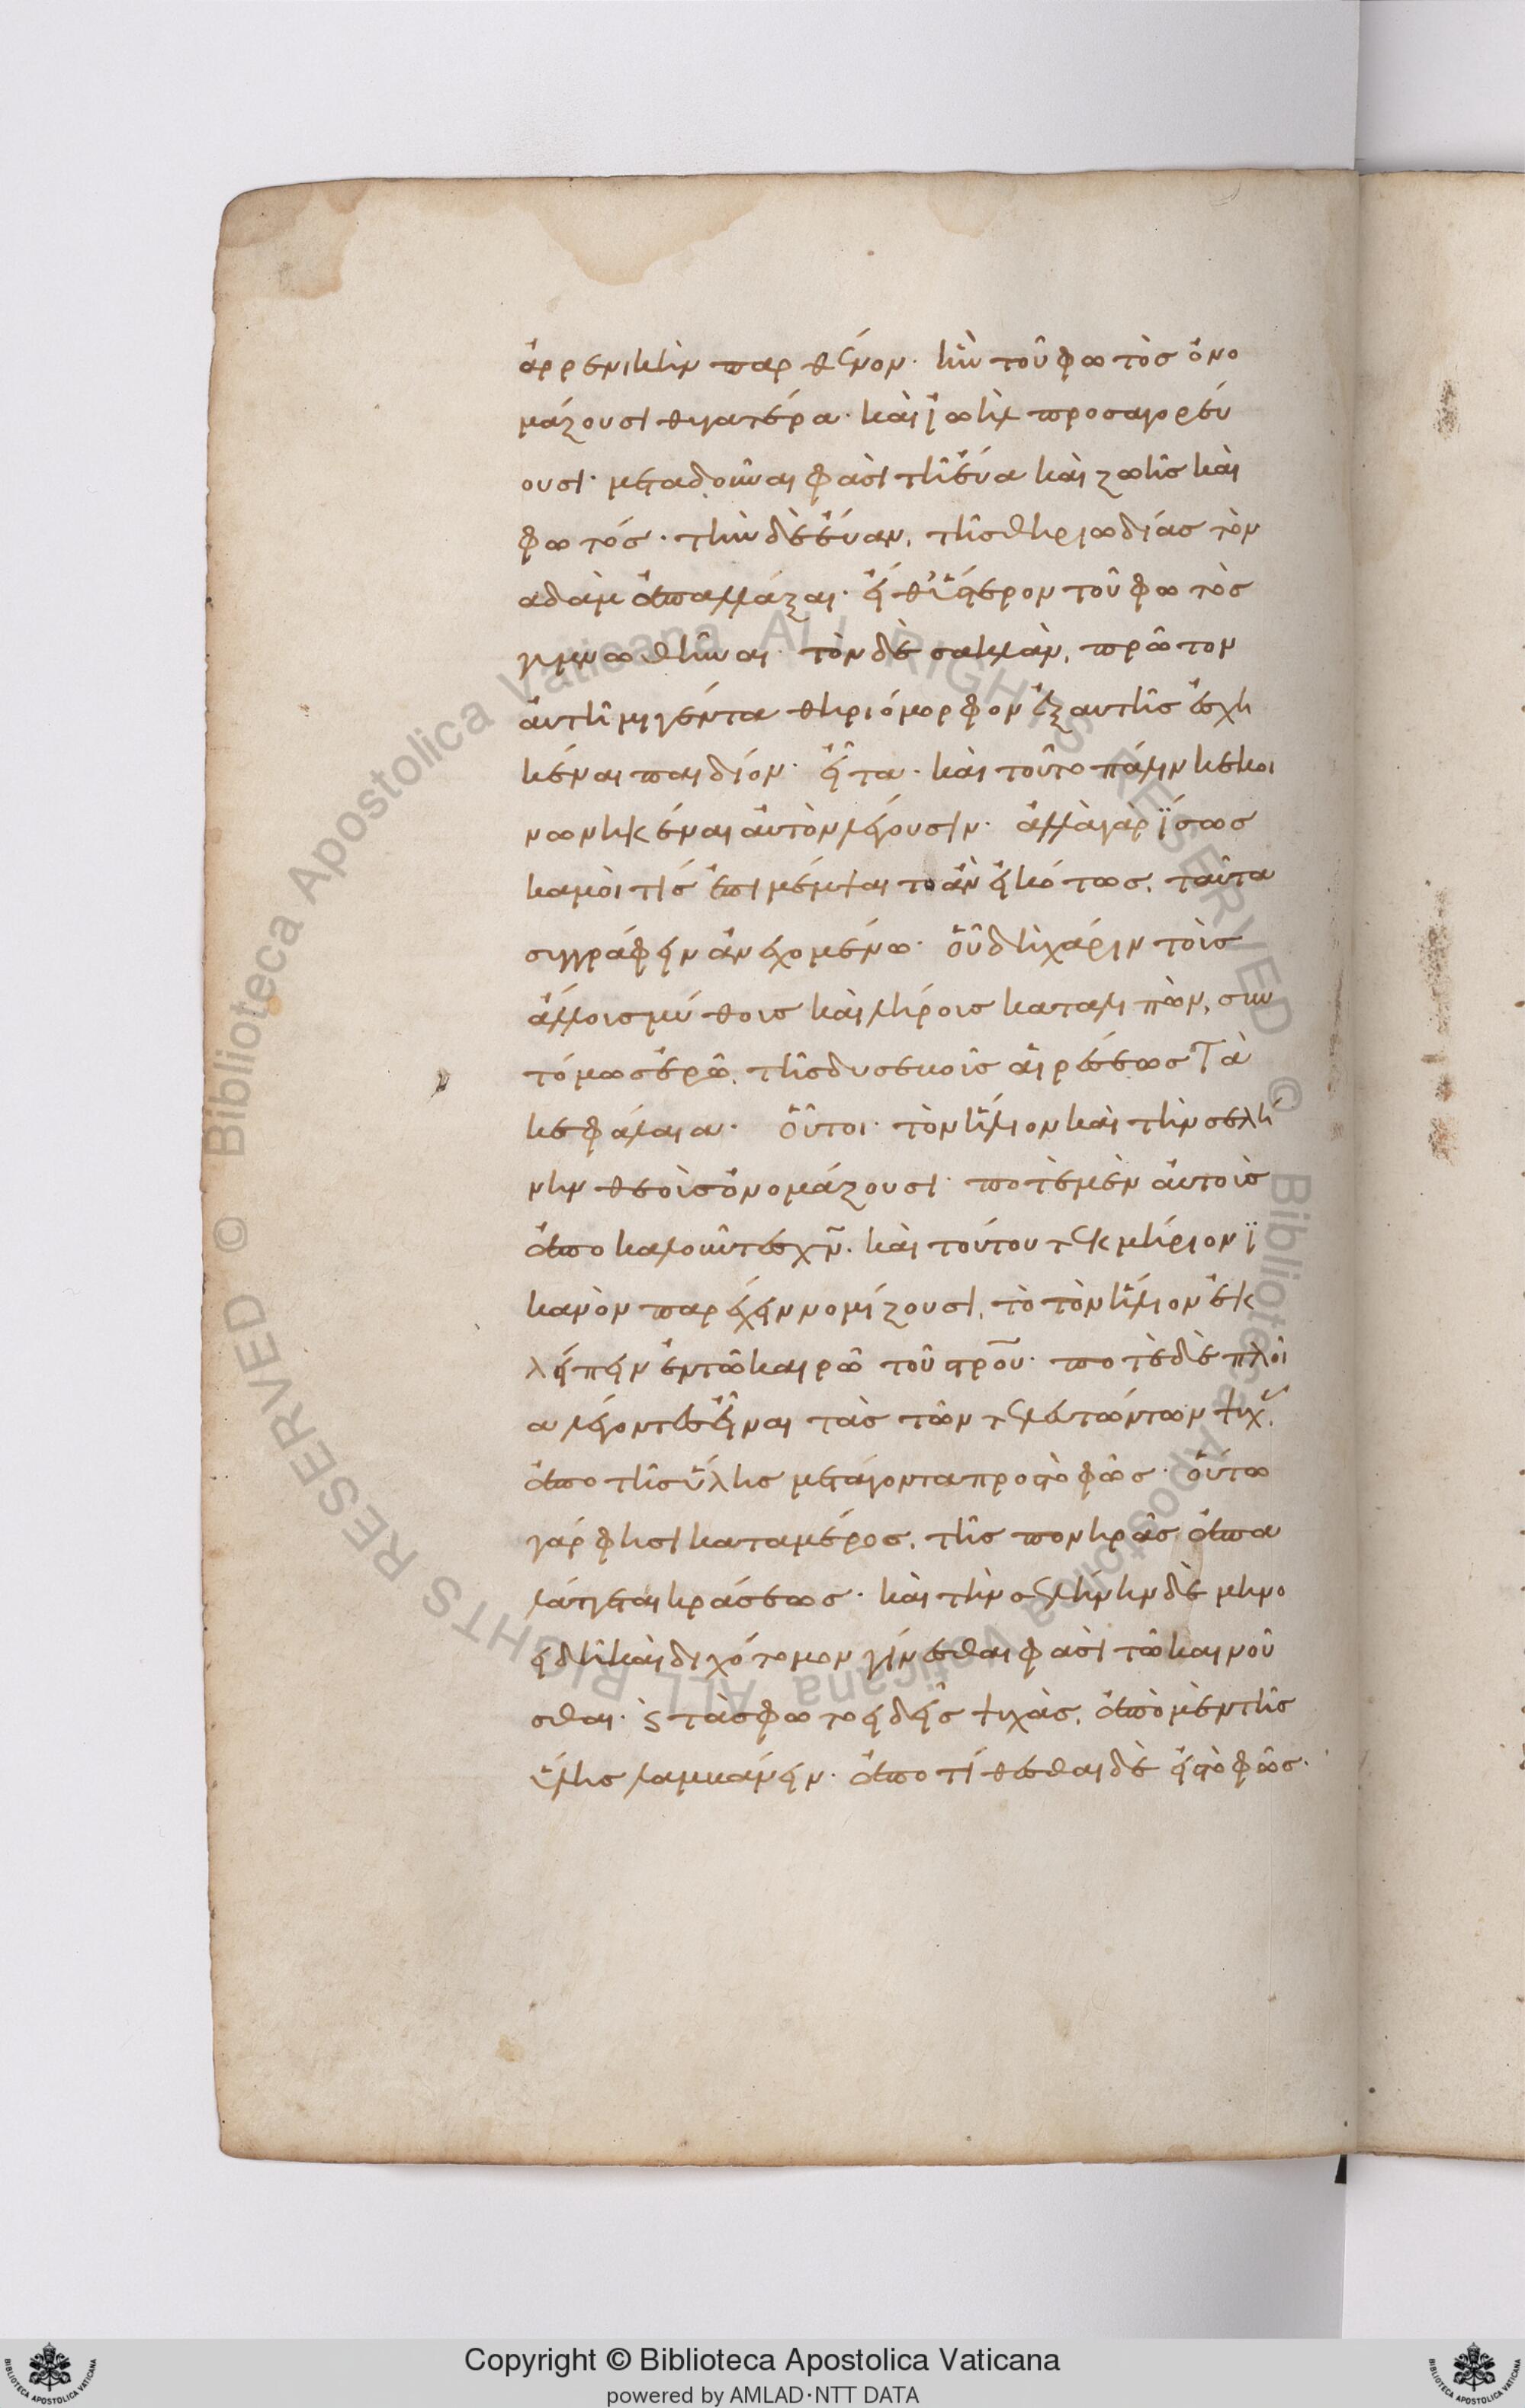 ἀρρενικὴν παρθένον· ἣν τοῦ φωτὸς ὀνο
μάζουσι θυγατέρα· καὶ ϊωὴλ προσαγορεύ
ουσι· μεταδοῦναι φασὶ τῆ εὔα καὶ ζωῆς καὶ
φωτός· τὴν δὲ εὔαν, τῆς θηριωδίας τὸν
αδὰμ ἀπαλλάξαι· εἶθ ὕστερον τοῦ φωτὸς
γυμνωθῆναι· τὸν δὲ σακλὰν, πρῶτον
αὐτῆ μιγέντα θηριόμορφον ἐξ αυτῆς ἐσχη
κέναι παιδίον· εἶτα· καὶ τοῦτο πάλιν κεκοι
νωνηκέναι αὐτὸν λέγουσιν· ἀλλὰ γὰρ ϊσως
καμοί τίς ἐπιμέμψαι το ἂν εἰκότως, ταῦτα
συγγράφειν ἀνεχομένω· οὗ δὴ χάριν τοῖς
ἄλλοις μύθοις καὶ λήροις καταλιπὼν, συν
τόμως ἐρῶ, τῆς δυσσεβοῦς αἱρέσεως Τὰ
κεφάλαια· οὗτοι· τὸν ἥλιον καὶ τὴν σελή
νην θεοὺς ὀνομάζουσι· ποτὲ μὲν αὐτοὺς
ἀποκαλοῦντες χν̄· καὶ τούτου τεκμήριον ϊ
κανὸν παρέχειν νομίζουσι, τὸ τὸν ἥλιον ἐκ
λείπειν ἐν τῶ καιρῶ τοῦ στρο̄υ· ποτὲ δὲ πλοῖ
α λέγοντες εἶναι τὰς τῶν τελευτώντων ψυχ,
ἀπο τῆς ὕλης μετάγοντα προς τὸ φῶς· οὕτω
γάρ φησι καταμέρος, τῆς πονηρᾶς ἀπα
λάττεται κράσεως· καὶ τὴν σελήνην δὲ μηνο
ειδῆ καὶ διχότομον γίνεσθαι φασὶ τῶ καινοῦ
σθαι· ϛ τὰς φωτοειδεῖς ψυχὰς, ἀπὸ μὲν τῆς
ὕλης λαμβάνειν· ἀποτίθεσθαι δὲ εἰς τὸ φῶς·
Copyright © Biblioteca Apostolica Vaticana
powered by AMLAD·NTT DATA